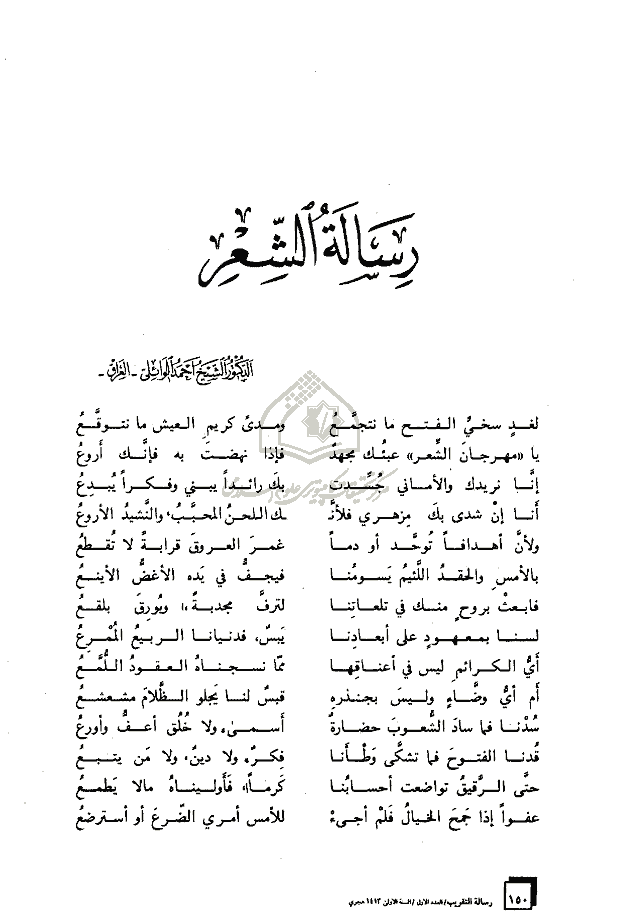 رِسَالَةُ الشِّعْرِ
الدكتور الشيخ احمد الوائلي - العراق -
لغدٍ سخيِّ الفتح ما نتجمَّعُ ومدىً كريمِ العيش ما نتوقَّعُ
يا «مهرجانَ الشِّعر» عبئُك مجهدٌ فإذا نهضتَ به فإنَّك أروعُ
إنَّا نريدك والأماني جُسِّدت بك رائداً يبني وفكراً يُبدِعُ
أنا إنْ شدى بكَ مِزهري فلأنَّـ ـك اللحنُ المحبَّبُ، والنَّشيدُ الأروعُ
ولأنَّ أهدافاً توحَّد أو دماً غمرَ العروقَ قرابةً لا تُقطعُ
بالأمسِ والحقدُ اللَّئيمُ يَسومُنا فيجفُّ في يَده الأغضُّ الأينعُ
فابعثْ بروحٍ منكَ في تلعاتِنا لترفَّ مجدبةٌ، ويُورِقَ بلقعُ
لسنا بمعهودٍ على أبعادِنا يَبَسٌ، فدنيانا الربيعُ المُمْرِعُ
أيُّ الكرائمِ ليس في أعناقِها ممّا نسجناهُ العقودُ اللُّمَّعُ
أم أيُّ وضَّاءٍ وليسَ بجنذرهِ قبسٌ لنا يَجلو الظَّلامَ مشعشعُ
سُدْنا فما سادَ الشُّعوبَ حضارةٌ أسمىٰ، ولا خُلُق أعفُّ وأورعُ
قُدنا الفتوحَ فما تشكَّى وَطْأَنا فِكرٌ، ولا دينٌ، ولا مَن يتبعُ
حتَّى الرَّقيقُ تواضعت أحسابُنا كَرماً، فَأوليناهُ مالا يَطمعُ
عفواً إذا جَمحَ الخيالُ فلم أجىءْ للأمس أمري الضّرعَ أو أسترضعُ
١٥٠ رسالة التقريب/العدد الاول/السنة الاولى ١٤١٣ هجري